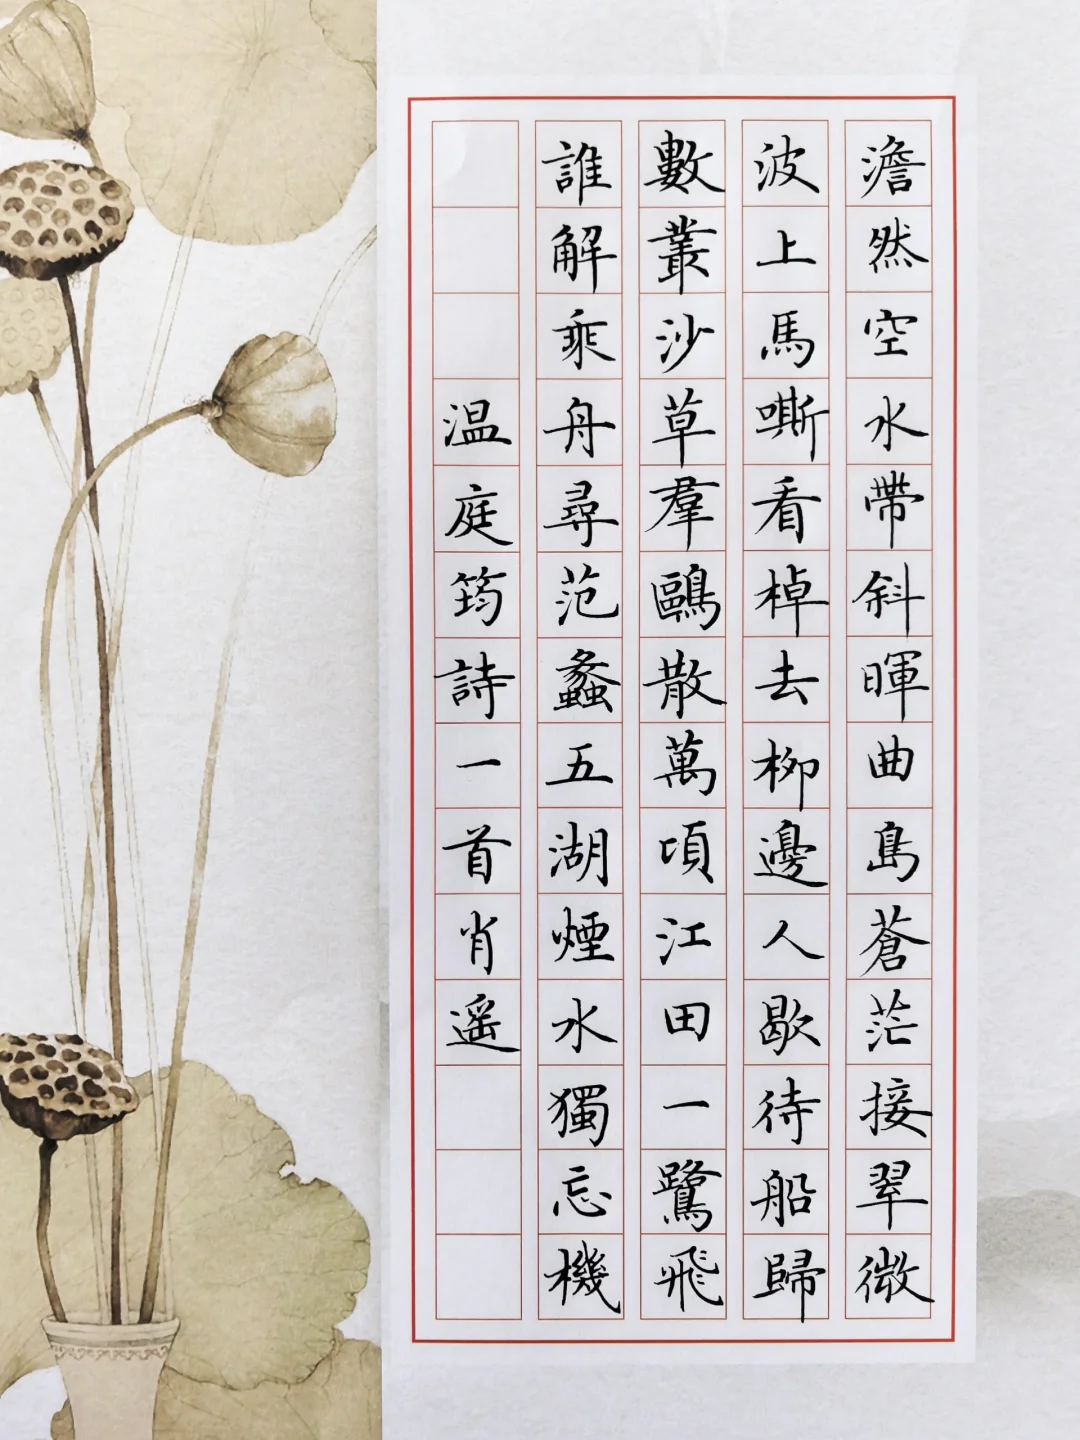 澹然空水帶斜暉曲島蒼茫接翠微
波上馬嘶看棹去柳邊人歇待船歸
數叢沙草羣鷗散萬頃江田一鷺飛
誰解乘舟尋范蠡五湖煙水獨忘機
温庭筠詩一首肖遥